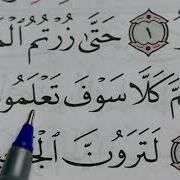 ١ حَتَّىٰ زُرْتُمُ ٱلْمَ
مَّ كَلَّا سَوْفَ تَعْلَمُو
لَتَرَوُنَّ ٱلْجَ